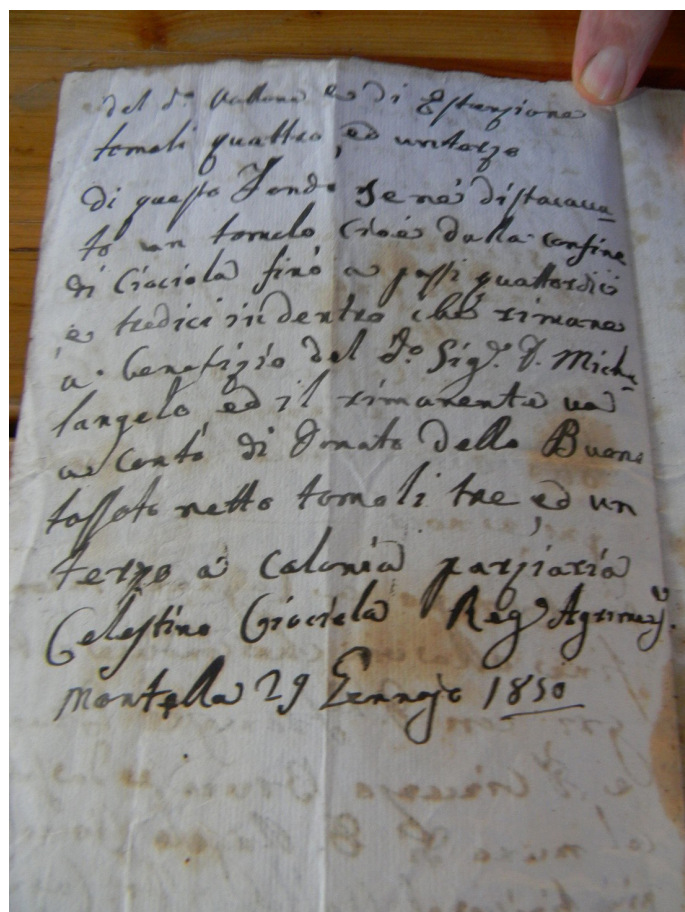 del d.º Vallone e di Estenzione
tomoli quattro, ed un terzo
di questo Fondo se nè distacca
to un tomolo cioè dalla confine
di Ciociola finò a passi quattordici
e tredici in dentro che rimane
a beneficio del d.º Sig.r D. Miche
langelo, ed il rimanente và
a conto di Donato dello Buono
tassato netto tomoli tre, ed un
terzo a colonia parziaria
Celestino Ciociola Reg.º Agrimens.
Montella 29 Gennajo 1850